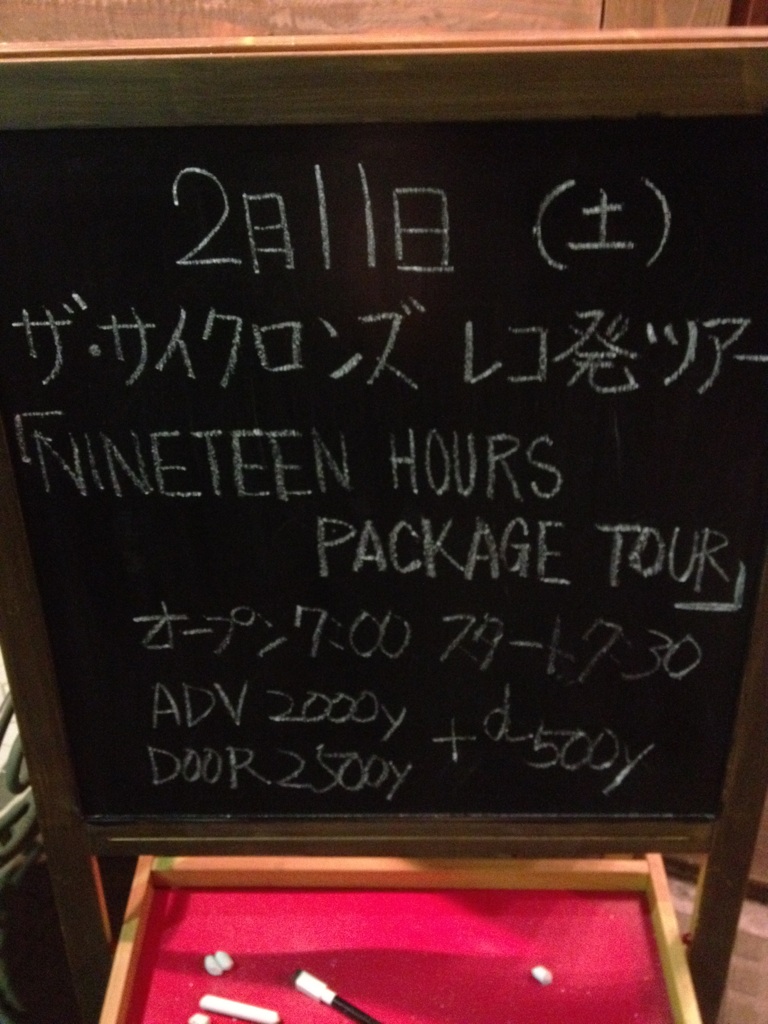 2月11日 (土)
ザ・サイクロンズ レコ発ツアー
「NINETEEN HOURS
PACKAGE TOUR」
オープン7:00 スタート7:30
ADV 2000y + d500y
DOOR 2500y